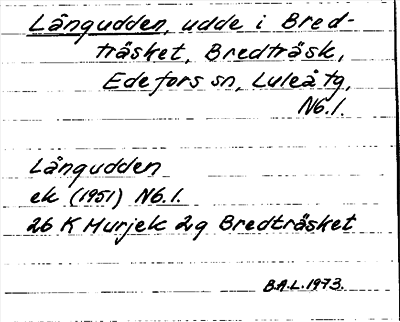 Långudden, udde i Bred-
träsket, Bredträsk,
Edefors sn, Luleå tg,
Nb.l.
Långudden
ek (1951) Nb.l.
26 K Murjek 2g Bredträsket
B.A.L. 1973.